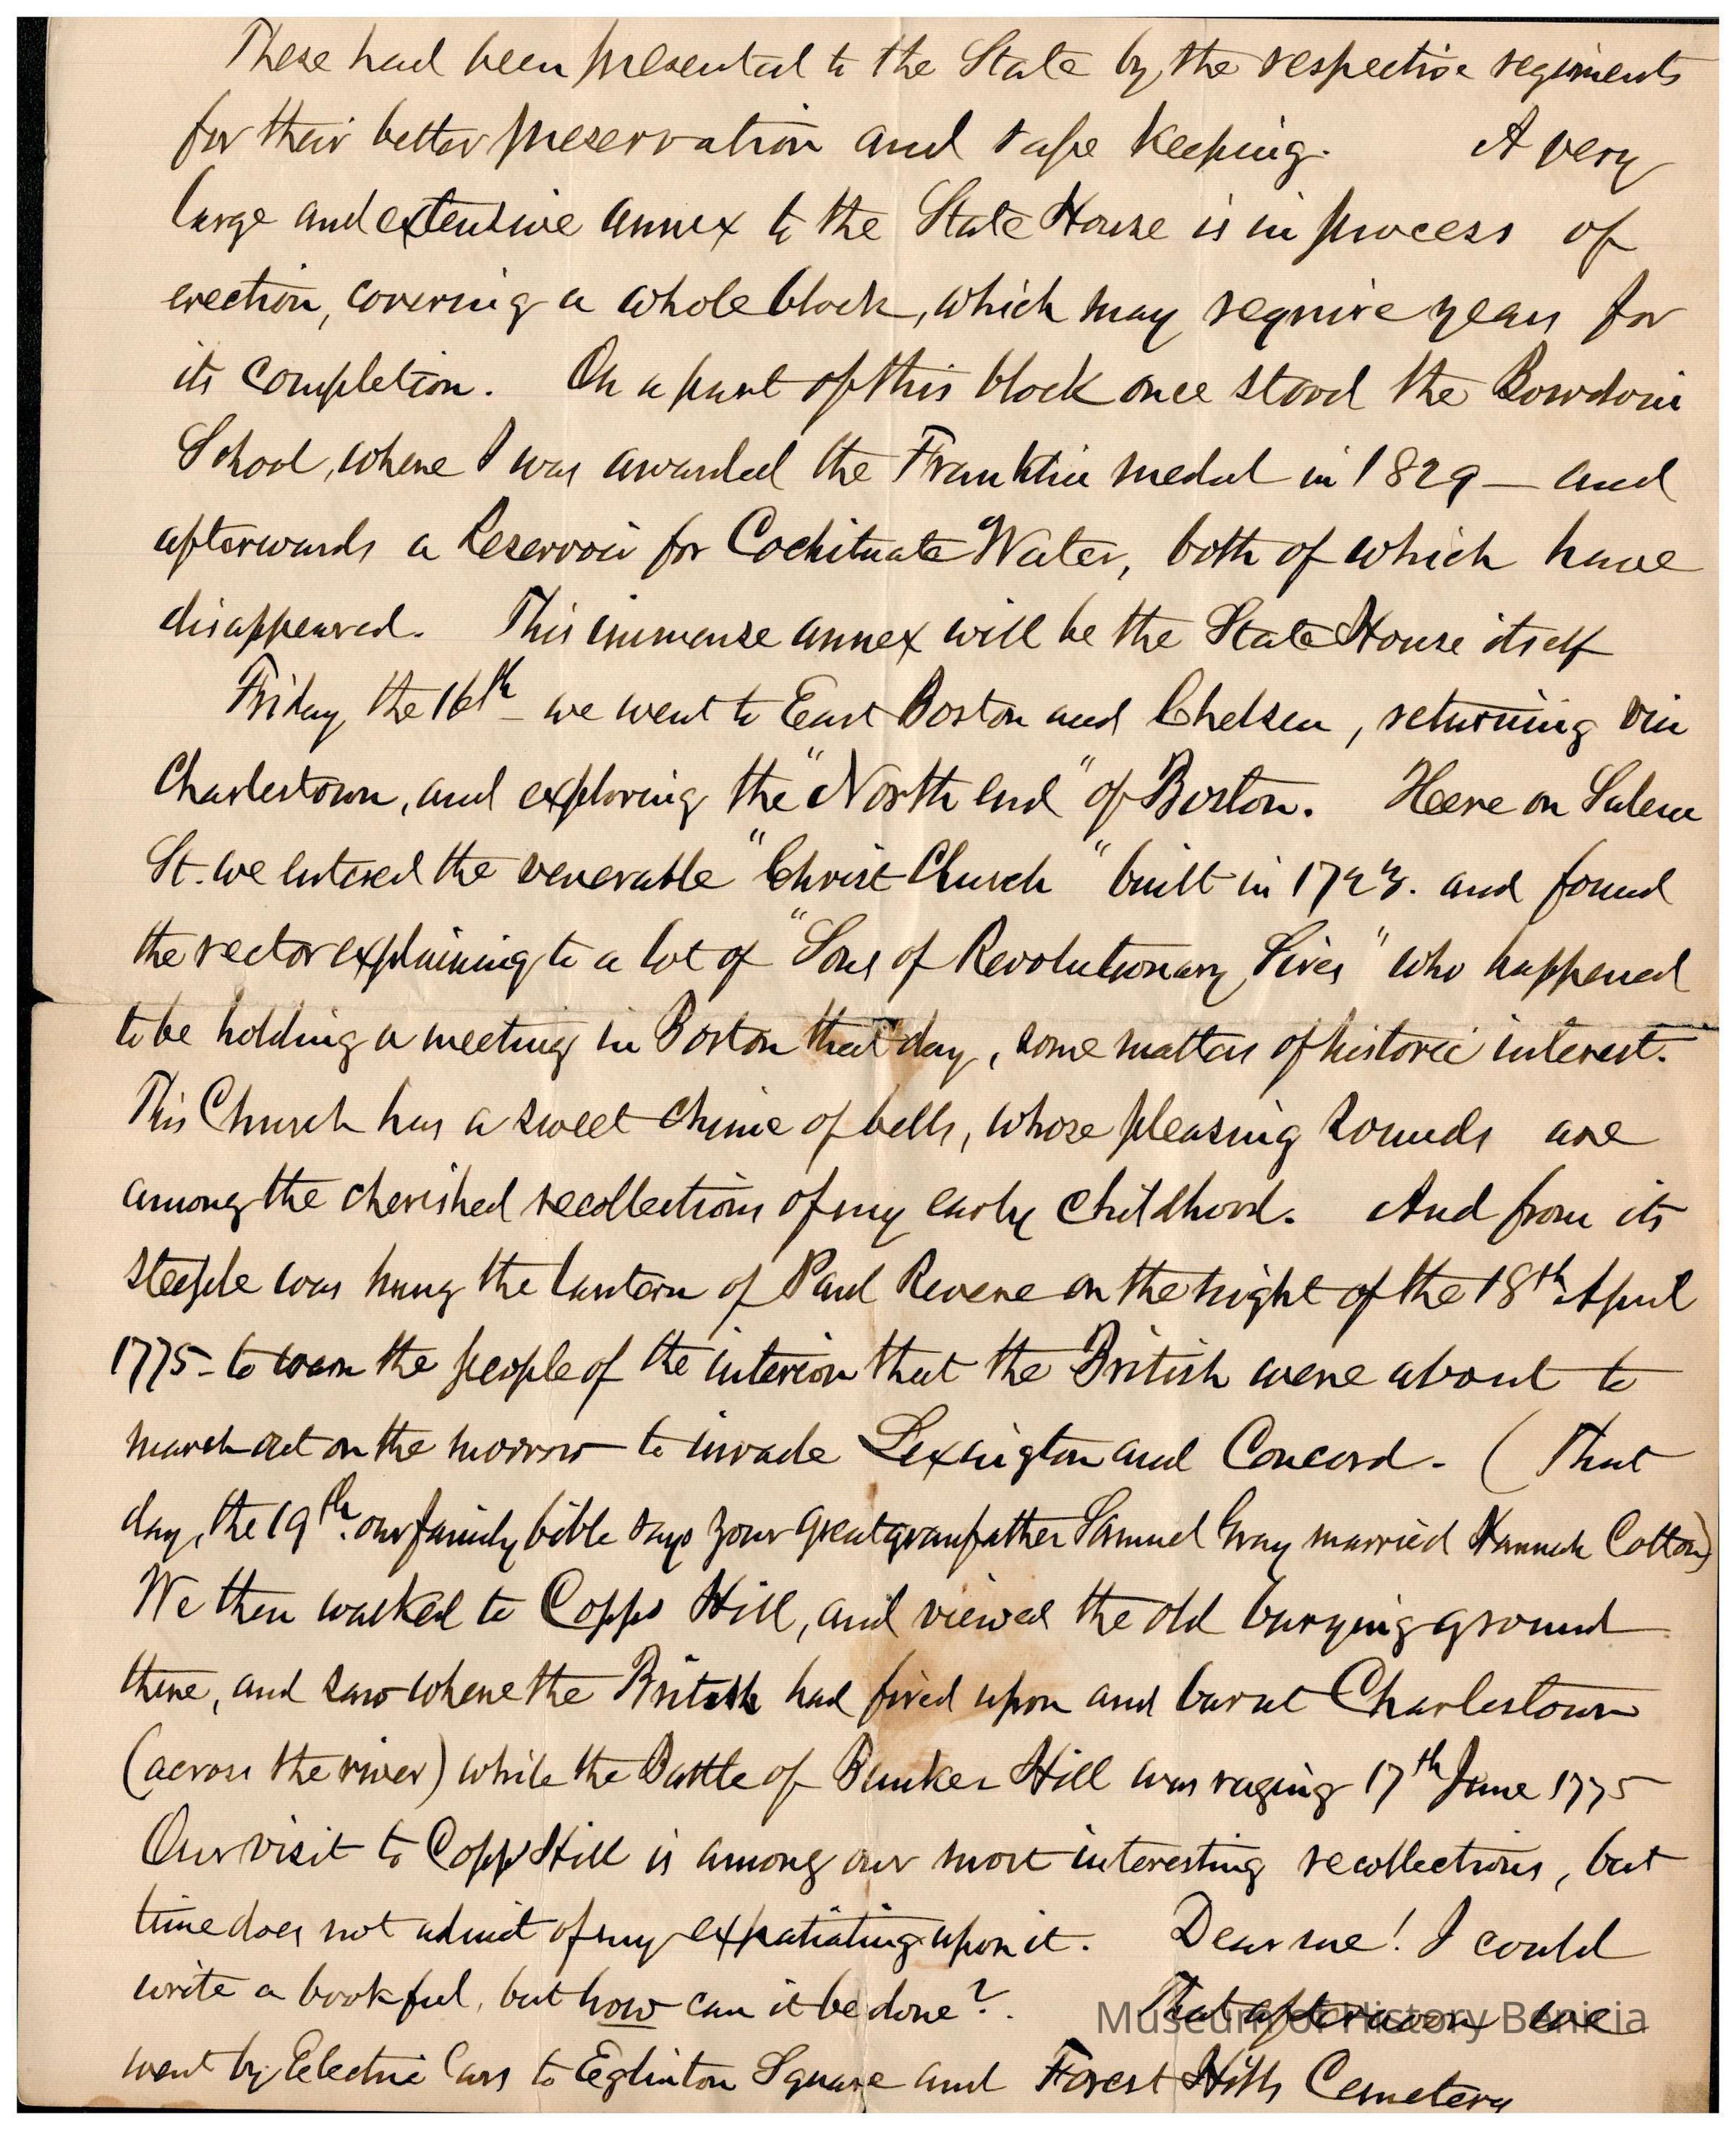 These had been presented to the State by the respective regiments
for their better preservation and safe keeping. A very
large and extensive annex to the State House is in process of
erection, covering a whole block, which may require years for
its completion. On a part of this block once stood the Bowdoin
School, where I was awarded the Franklin medal in 1829 — and
afterwards a Reservoir for Cochituate Water, both of which have
disappeared. This immense annex will be the State House itself
Friday, the 16th - we went to East Boston and Chelsea, returning via
Charlestown, and exploring the "North end" of Boston. Here on Salem
St. we entered the venerable "Christ Church" built in 1723. and found
the rector explaining to a lot of "Sons of Revolutionary Sires" who happened
to be holding a meeting in Boston that day, some matters of historic interest.
This Church has a sweet chime of bells, whose pleasing sounds are
among the cherished recollections of my early childhood. And from its
steeple was hung the lantern of Paul Revere on the night of the 18th April
1775 - to warn the people of the interior that the British were about to
march out on the morrow to invade Lexington and Concord. (That
day, the 19th. our family bible says your greatgranfather Samuel Gray married Hannah Cotton)
We then walked to Copps Hill, and viewed the old burying ground
there, and saw where the British had fired upon and burnt Charlestown
(across the river) while the Battle of Bunker Hill was raging 17th June 1775
Our visit to Copp's Hill is among our most interesting recollections, but
time does not admit of my expatiating upon it. Dear me! I could
write a book full, but how can it be done? That afternoon we
Museum of History Benicia
went by Electric Cars to Eglinton Square and Forest Hills Cemetery